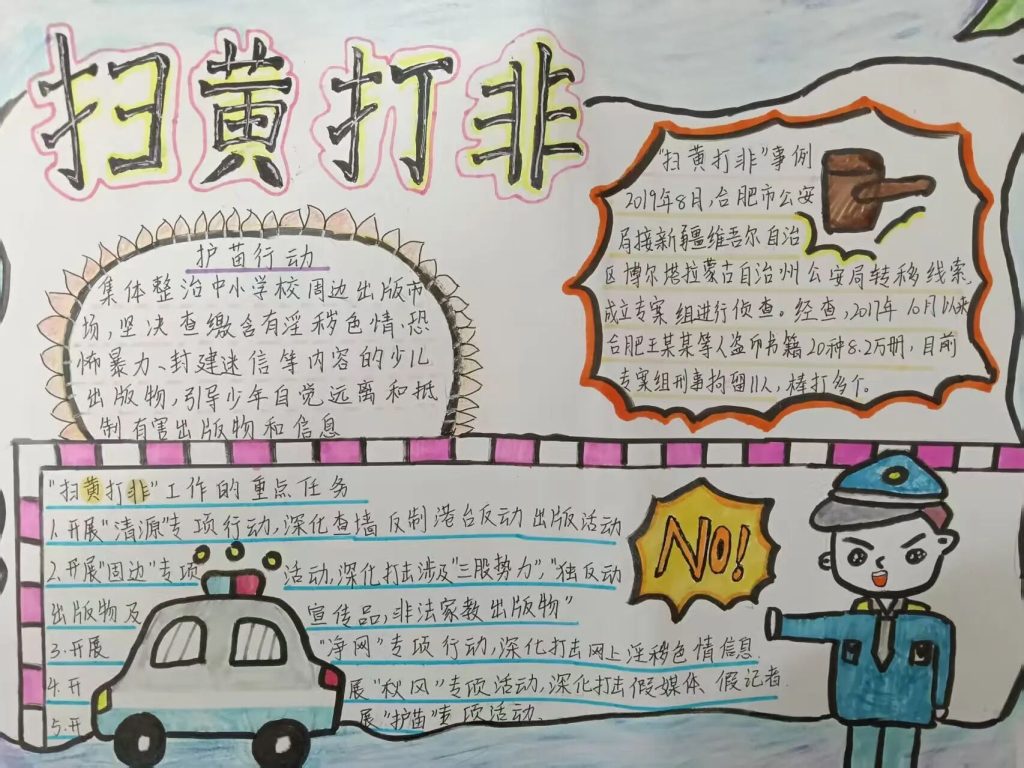 扫黄打非
护苗行动
集体整治中小学校周边出版市
场,坚决查缴含有淫秽色情、恐
怖暴力、封建迷信等内容的少儿
出版物,引导少年自觉远离和抵
制有害出版物和信息
"扫黄打非"事例
2019年8月,合肥市公安
局接新疆维吾尔自治
区博尔塔拉蒙古自治州公安局转移线索,
成立专案组进行侦查。经查,2017年10月以来
合肥王某某等人盗印书籍20种8.2万册,目前
专案组刑事拘留11人,棒打多个。
"扫黄打非"工作的重点任务
1.开展"清源"专项行动,深化查墙反制港台反动出版活动
2.开展"固边"专项活动,深化打击涉及"三股势力","独反动
出版物及宣传品,非法家教出版物"
3.开展"净网"专项行动,深化打击网上淫秽色情信息.
4.开展"秋风"专项活动,深化打击假媒体 假记者.
5.开展"护苗"专项活动.
NO!